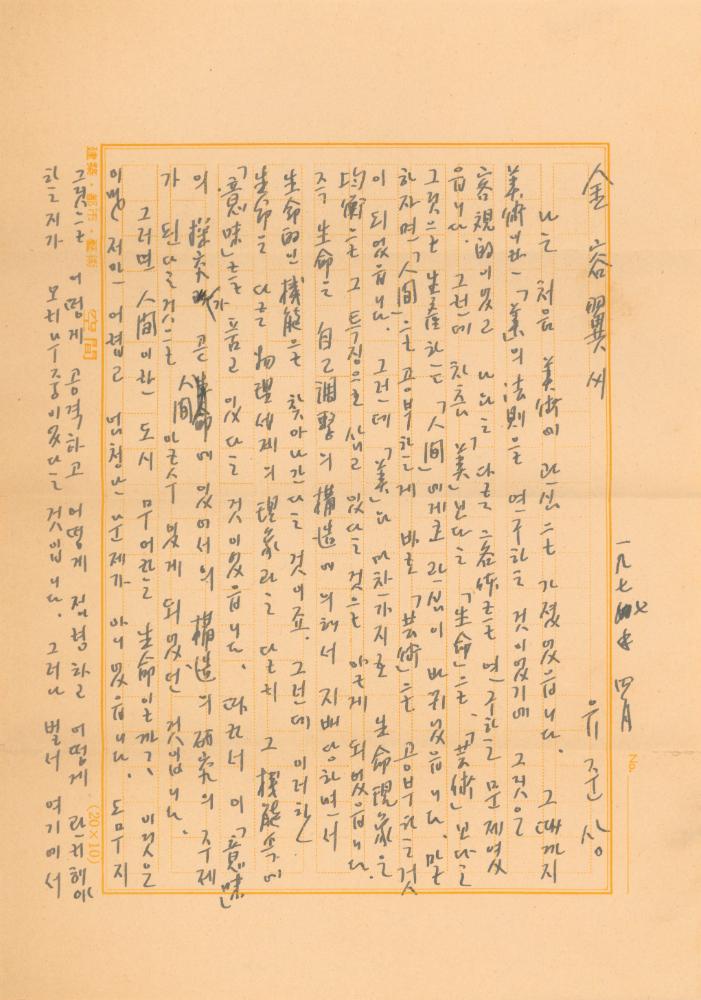 一九七七年 四月
金容翼씨
유준상
나는 처음 美術에 관심을 가졌었읍니다. 그때까지
美術이란「美」의 法則을 연구하는 것이었기에 그것은
客観的이었고 나와는 다른 客体를 연구하는 문제였
읍니다. 그런데 차츰「美」보다는「生命」을,「芸術」보다는
그것을 生産하는「人間」에게로 관심이 바뀌었읍니다. 말을
하자면「人間」을 공부하는게 바로「芸術」을 공부하는것
이 되었읍니다. 그런데「美」나 마찬가지로 生命現象은
均衡을 그 특징으로 삼고 있다는 것을 알게 되었읍니다.
즉 生命은 自己調整의 構造에 의해서 지배당하면서
生命的인 機能을 찾아나간다는 것이죠. 그런데 이러한
生命은 다른 物理세계의 現象과는 달리 그 機能속에
「意味」를 품고 있다는 것이었읍니다. 따라서 이「意味」
의 探究가 곧 生命에 있어서의 構造의 研究의 주제
가 된다는것을 알수 있게 되었던 것입니다.
그러면 人間이란 도시 무어라는 生命일까? 이것은
이만저만 어렵고 엄청난 문제가 아니었읍니다. 도무지
그것을 어떻게 공격하고 어떻게 점령하고 어떻게 관리해야
하는지가 오리무중이었다는 것입니다. 그러나 벌써 여기에서
建築・都市・藝術 空間 (20×10)
No.